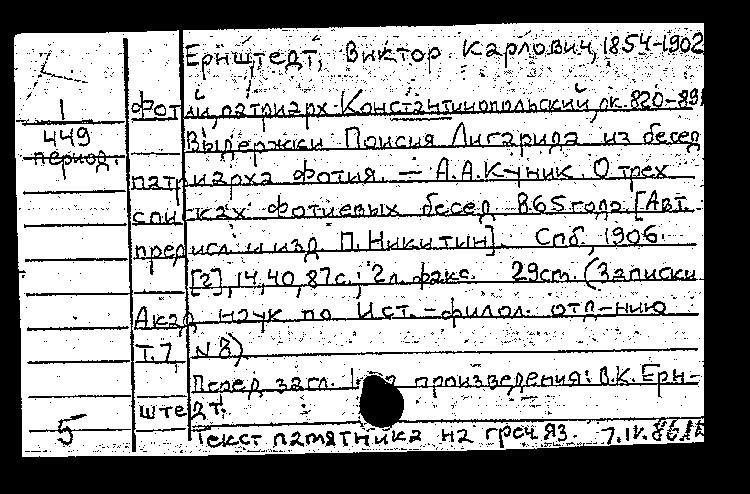 Ернштедт, Виктор Карлович, 1854-1902
1
449
период.
Фотий, патриарх Константинопольский, ок. 820-891
Выдержки Поисия Лигарида из бесед
патриарха Фотия. — А.А. Куник. О трех
списках Фотиевых бесед 865 года. [Авт.
предисл. и изд. П. Никитин]. Спб, 1906.
[2], 14, 40, 87 с.; 2 л. факс. 29 cm. (Записки
Акад. наук по Ист.-филол. отд-нию
Т.7, N 8)
Перед загл. произведения: В.К. Ерн-
штедт.
5
Текст памятника на греч яз. 7.IV.86